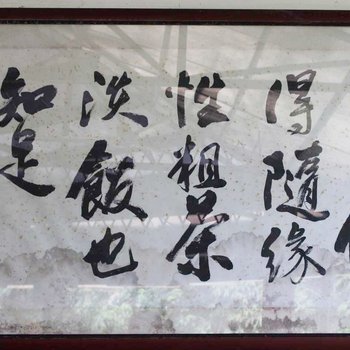 得隨缘
性粗茶
淡飯也
知足